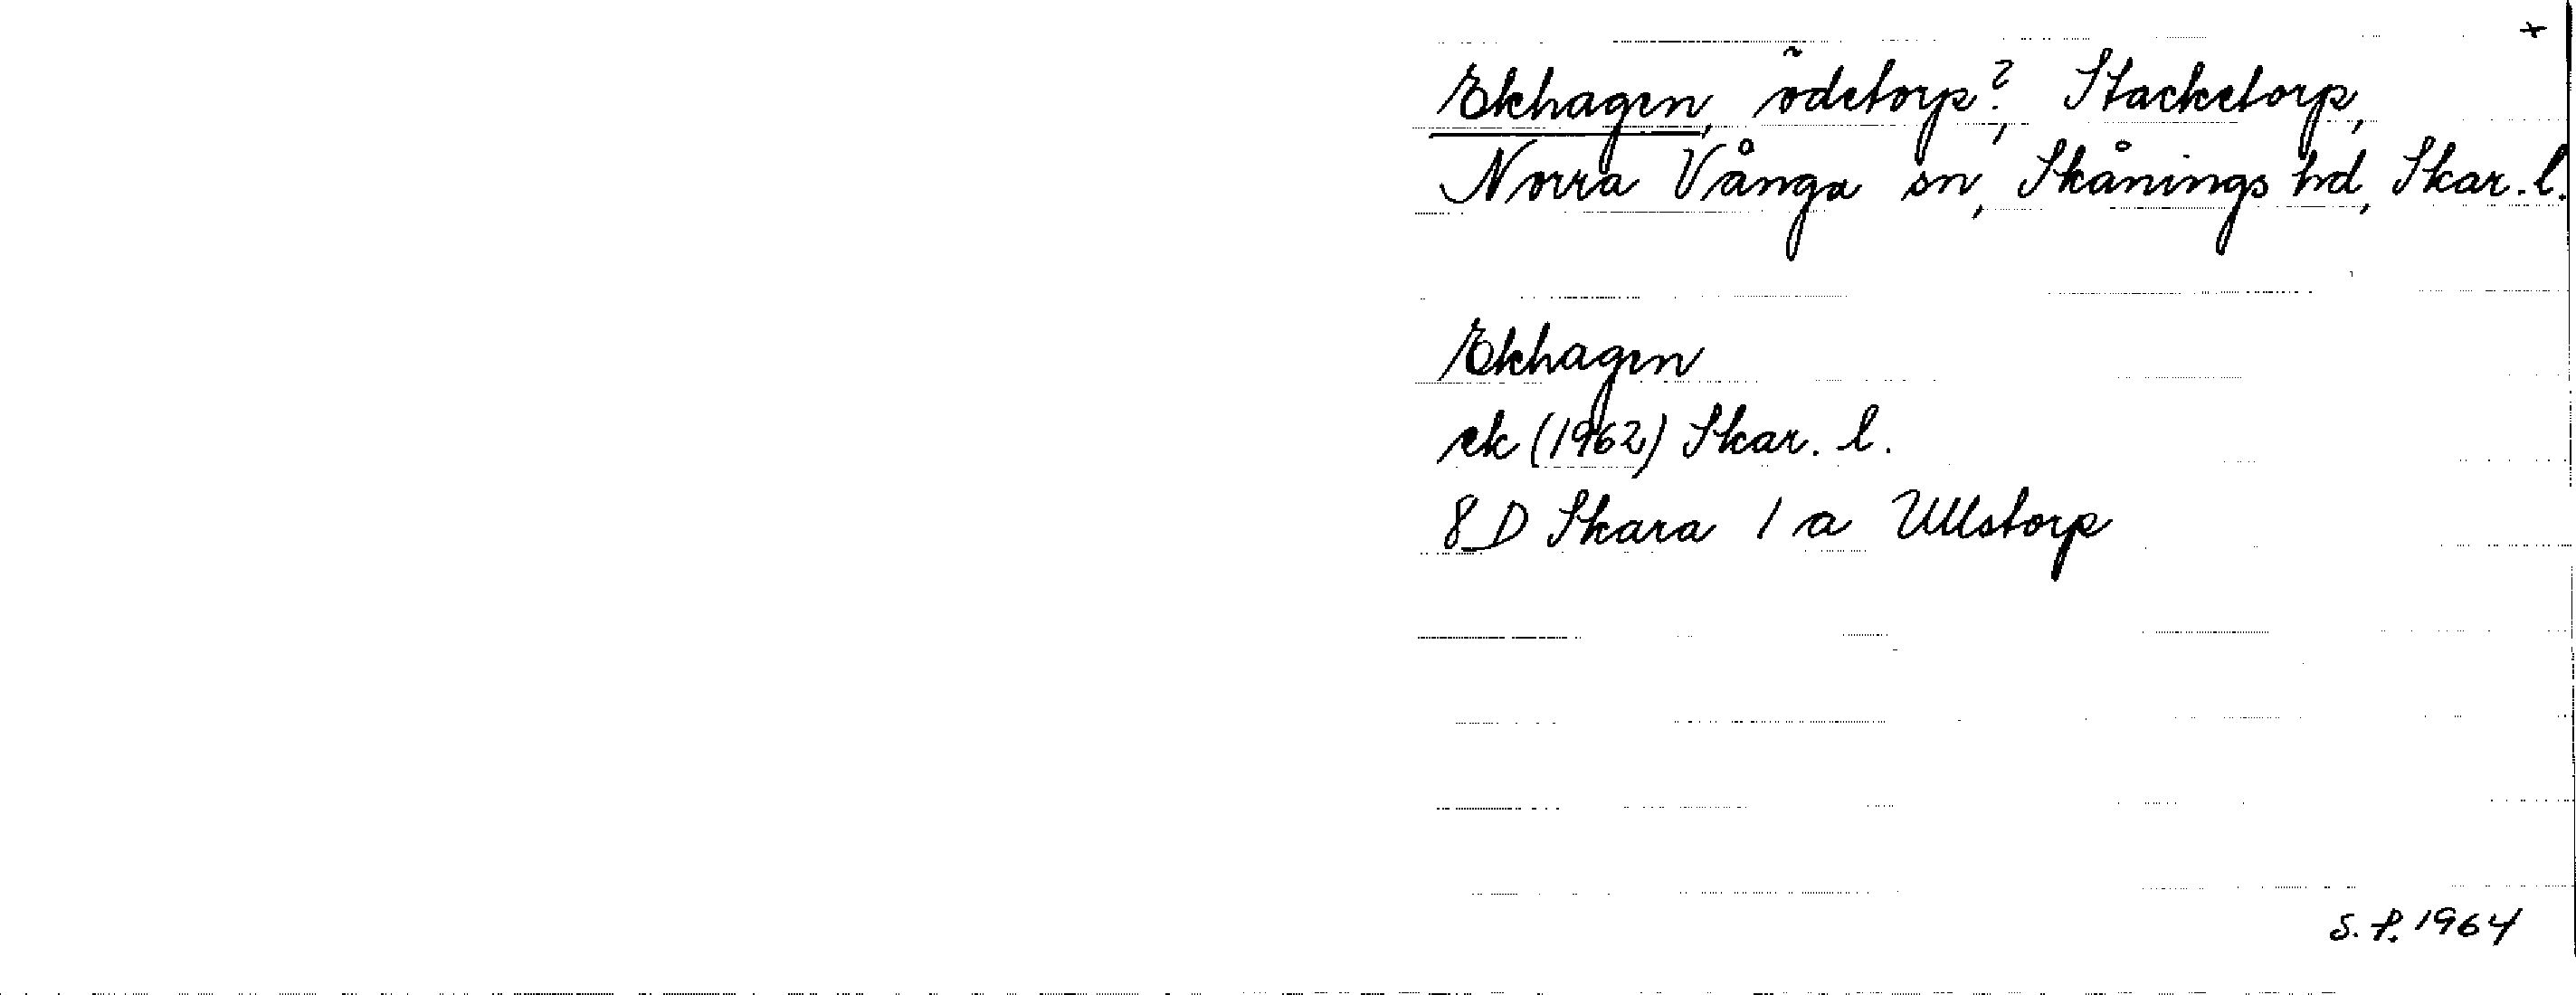 +
Ekhagen, ödetorp?, Stacketorp,
Norra Vånga sn, Skånings hd, Skar. l.
Ekhagen
ek (1962) Skar. l.
8 D Skara 1 a Ullstorp
S. P. 1964